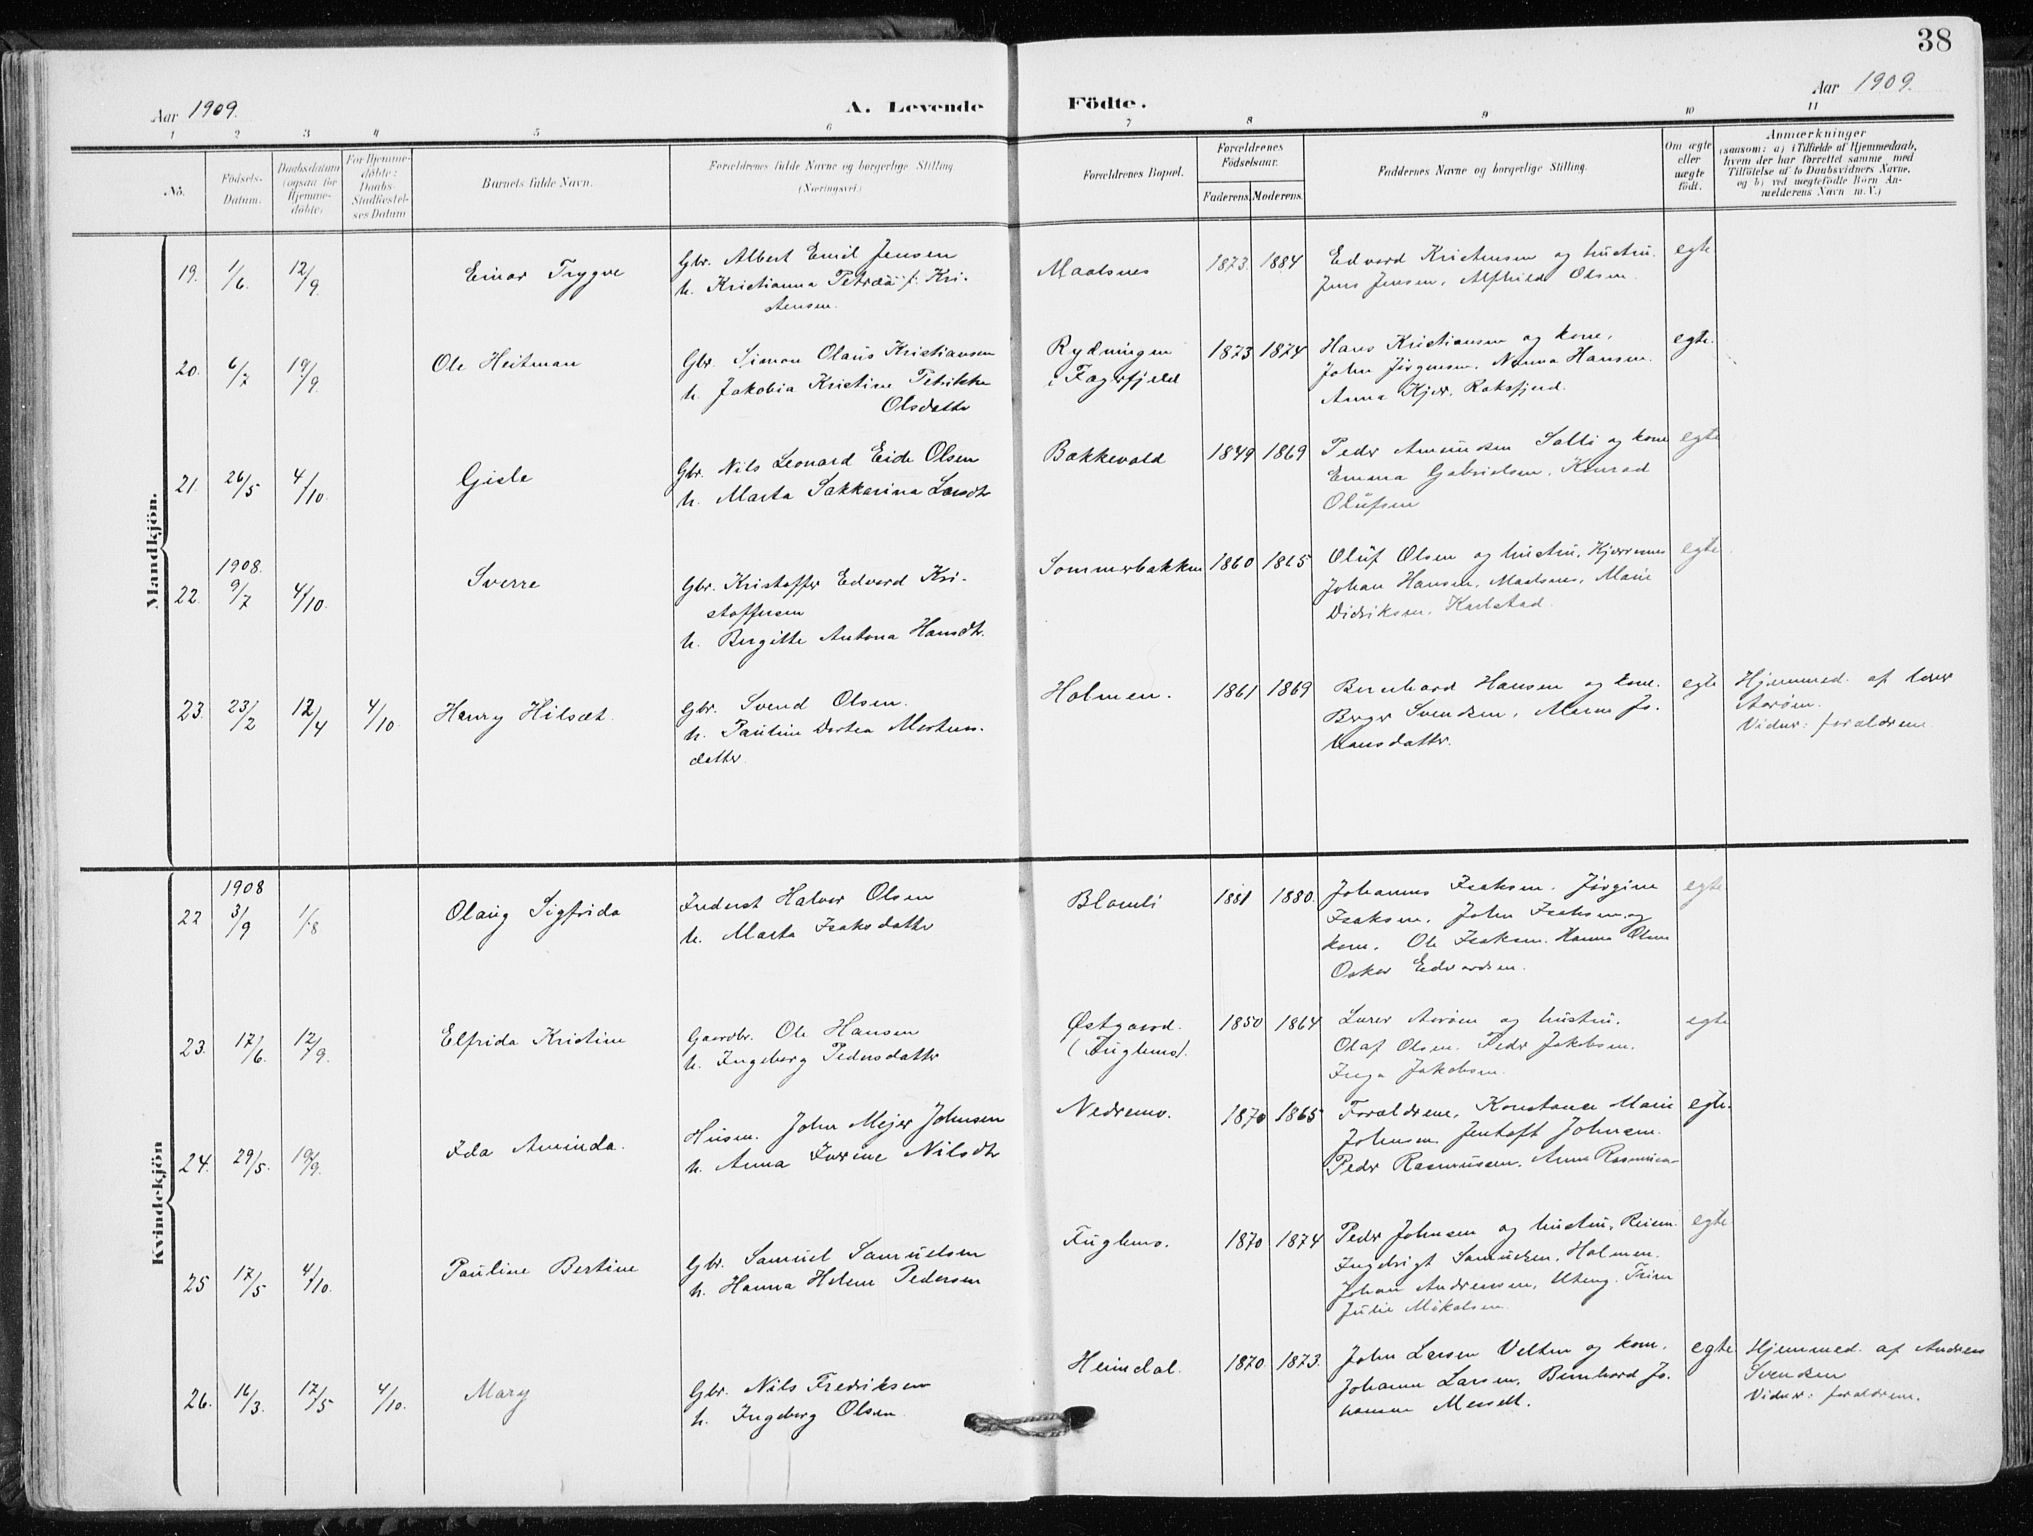 38
Aar 1909.
A. Levende
Födte.
Aar 1909.
1 2 3 4 5 6 7 8 9 10 11
No.
Födsels-
Datum.
Daabsdatum
(ogsaa for
Hjemme-
döbte)
For Hjemme-
döbte:
Daabs-
Stadfæstel-
ses Datum
Barnets fulde Navn.
Forældrenes fulde Navne og borgerlige Stilling
(Næringsvei.)
Forældrenes Bopæl.
Forældrenes
Födselsaar.
Faderens. Moderens.
Faddernes Navne og borgerlige Stilling.
Om ægte
eller
uægte
födt.
Anmærkninger
(saasom: a) i Tilfælde af Hjemmedaab,
hvem der har forrettet samme med
Tilföielse af to Daabsvidners Navne,
og b) ved uægtefödte Börn An-
melderens Navn m.V.)
Mandkjön.
19. 1/6. 12/9 Einar Trygve
Gbr. Albert Emil Jensen
h. Kristianna Petræa f. Kri-
stensen.
Maalsnes 1873. 1884
Edvard Kristensen og hustru.
Jens Jensen, Alfhild Olsen.
egte
20. 6/7 19/9. Ole Heitman
Gbr. Simon Olaus Kristiansen
h. Jakobia Kristine Petrikke
Olsdatter
Rydningen
i Fagerfjeld
1873 1874
Hans Kristiansen og kone,
John Jörgensen, Nanna Hansen.
Anna Kjær, Roksfjord.
egte.
21. 26/5 4/10. Gisle
Gbr. Nils Leonard Eide Olsen
h. Marta Sakkarina Larsdtr
Bakkevold 1849 1869
Peder Amundsen Salli og kone
Emma Gabrielsen, Konrad
Olufsen
egte
22. 1908. 9/7 4/10. Sverre
Gbr. Kristoffer Edvard Kri-
stoffersen
h. Bergitte Antona Hansdtr.
Sommerbakken 1860 1865
Oluf Olsen og hustru, Kjærresnes
Johan Hansen, Maalsnes, Marie
Didriksen, Karlstad.
egte
23. 23/2 12/4 4/10 Henry Hilsæt.
Gbr. Svend Olsen.
h. Pauline Dortea Mortens-
datter.
Holmen. 1861 1869
Bernhard Hansen og kone.
Berger Svendsen, Maren Jo-
hansdatter.
egte
Hjemmed. af lærer
Aaröen.
Vidner: forældrene
Kvindekjön
22 1908 3/9 1/8 Olaug Sigfrida
Inderst Halvor Olsen
h. Marta Isaksdatter
Blaali 1881 1880.
Johannes Isaksen, Jörgine
Isaksen, John Isaksen og
kone, Ole Isaksen, Hanna Olsen
Oskar Edvardsen.
egte
23. 17/6. 12/9. Elfrida Kristine
Gaardbr. Ole Hansen
h. Ingeborg Pedersdatter
Östgaard.
(Fuglemo).
1850 1864
Lærer Aaröen og hustru.
Olaf Olsen. Peder Jakobsen.
Inga Jakobsen.
egte
24. 29/5. 19/9. Ida Aminda.
Husm. John Mejer Johnsen
h. Anna Karine Nilsdtr
Nedremo. 1870 1865
Forældrene, Konstance Marie
Johnsen, Jentoft Johnsen.
Peder Rasmussen, Anna Rasmussen
egte.
25 17/5 4/10. Pauline Bertine
Gbr. Samuel Samuelsen
h. Hanna Helene Pedersen
Fuglemo. 1870 1874
Peder Johnsen og hustru,
Ingebrigt Samuelsen, Holmen.
Johan Andreassen,
Julie Mikalsen.
egte
26. 16/3. 17/5 4/10. Mary
Gbr. Nils Fredriksen
h. Ingeborg Olsen.
Heimdal. 1870 1873.
John Larsen Velten og kone.
Johanna Larsen, Bernhard Jo-
hannes Messelt.
egte
Hjemmed. af Andreas
Svendsen
Vidner: forældrene.